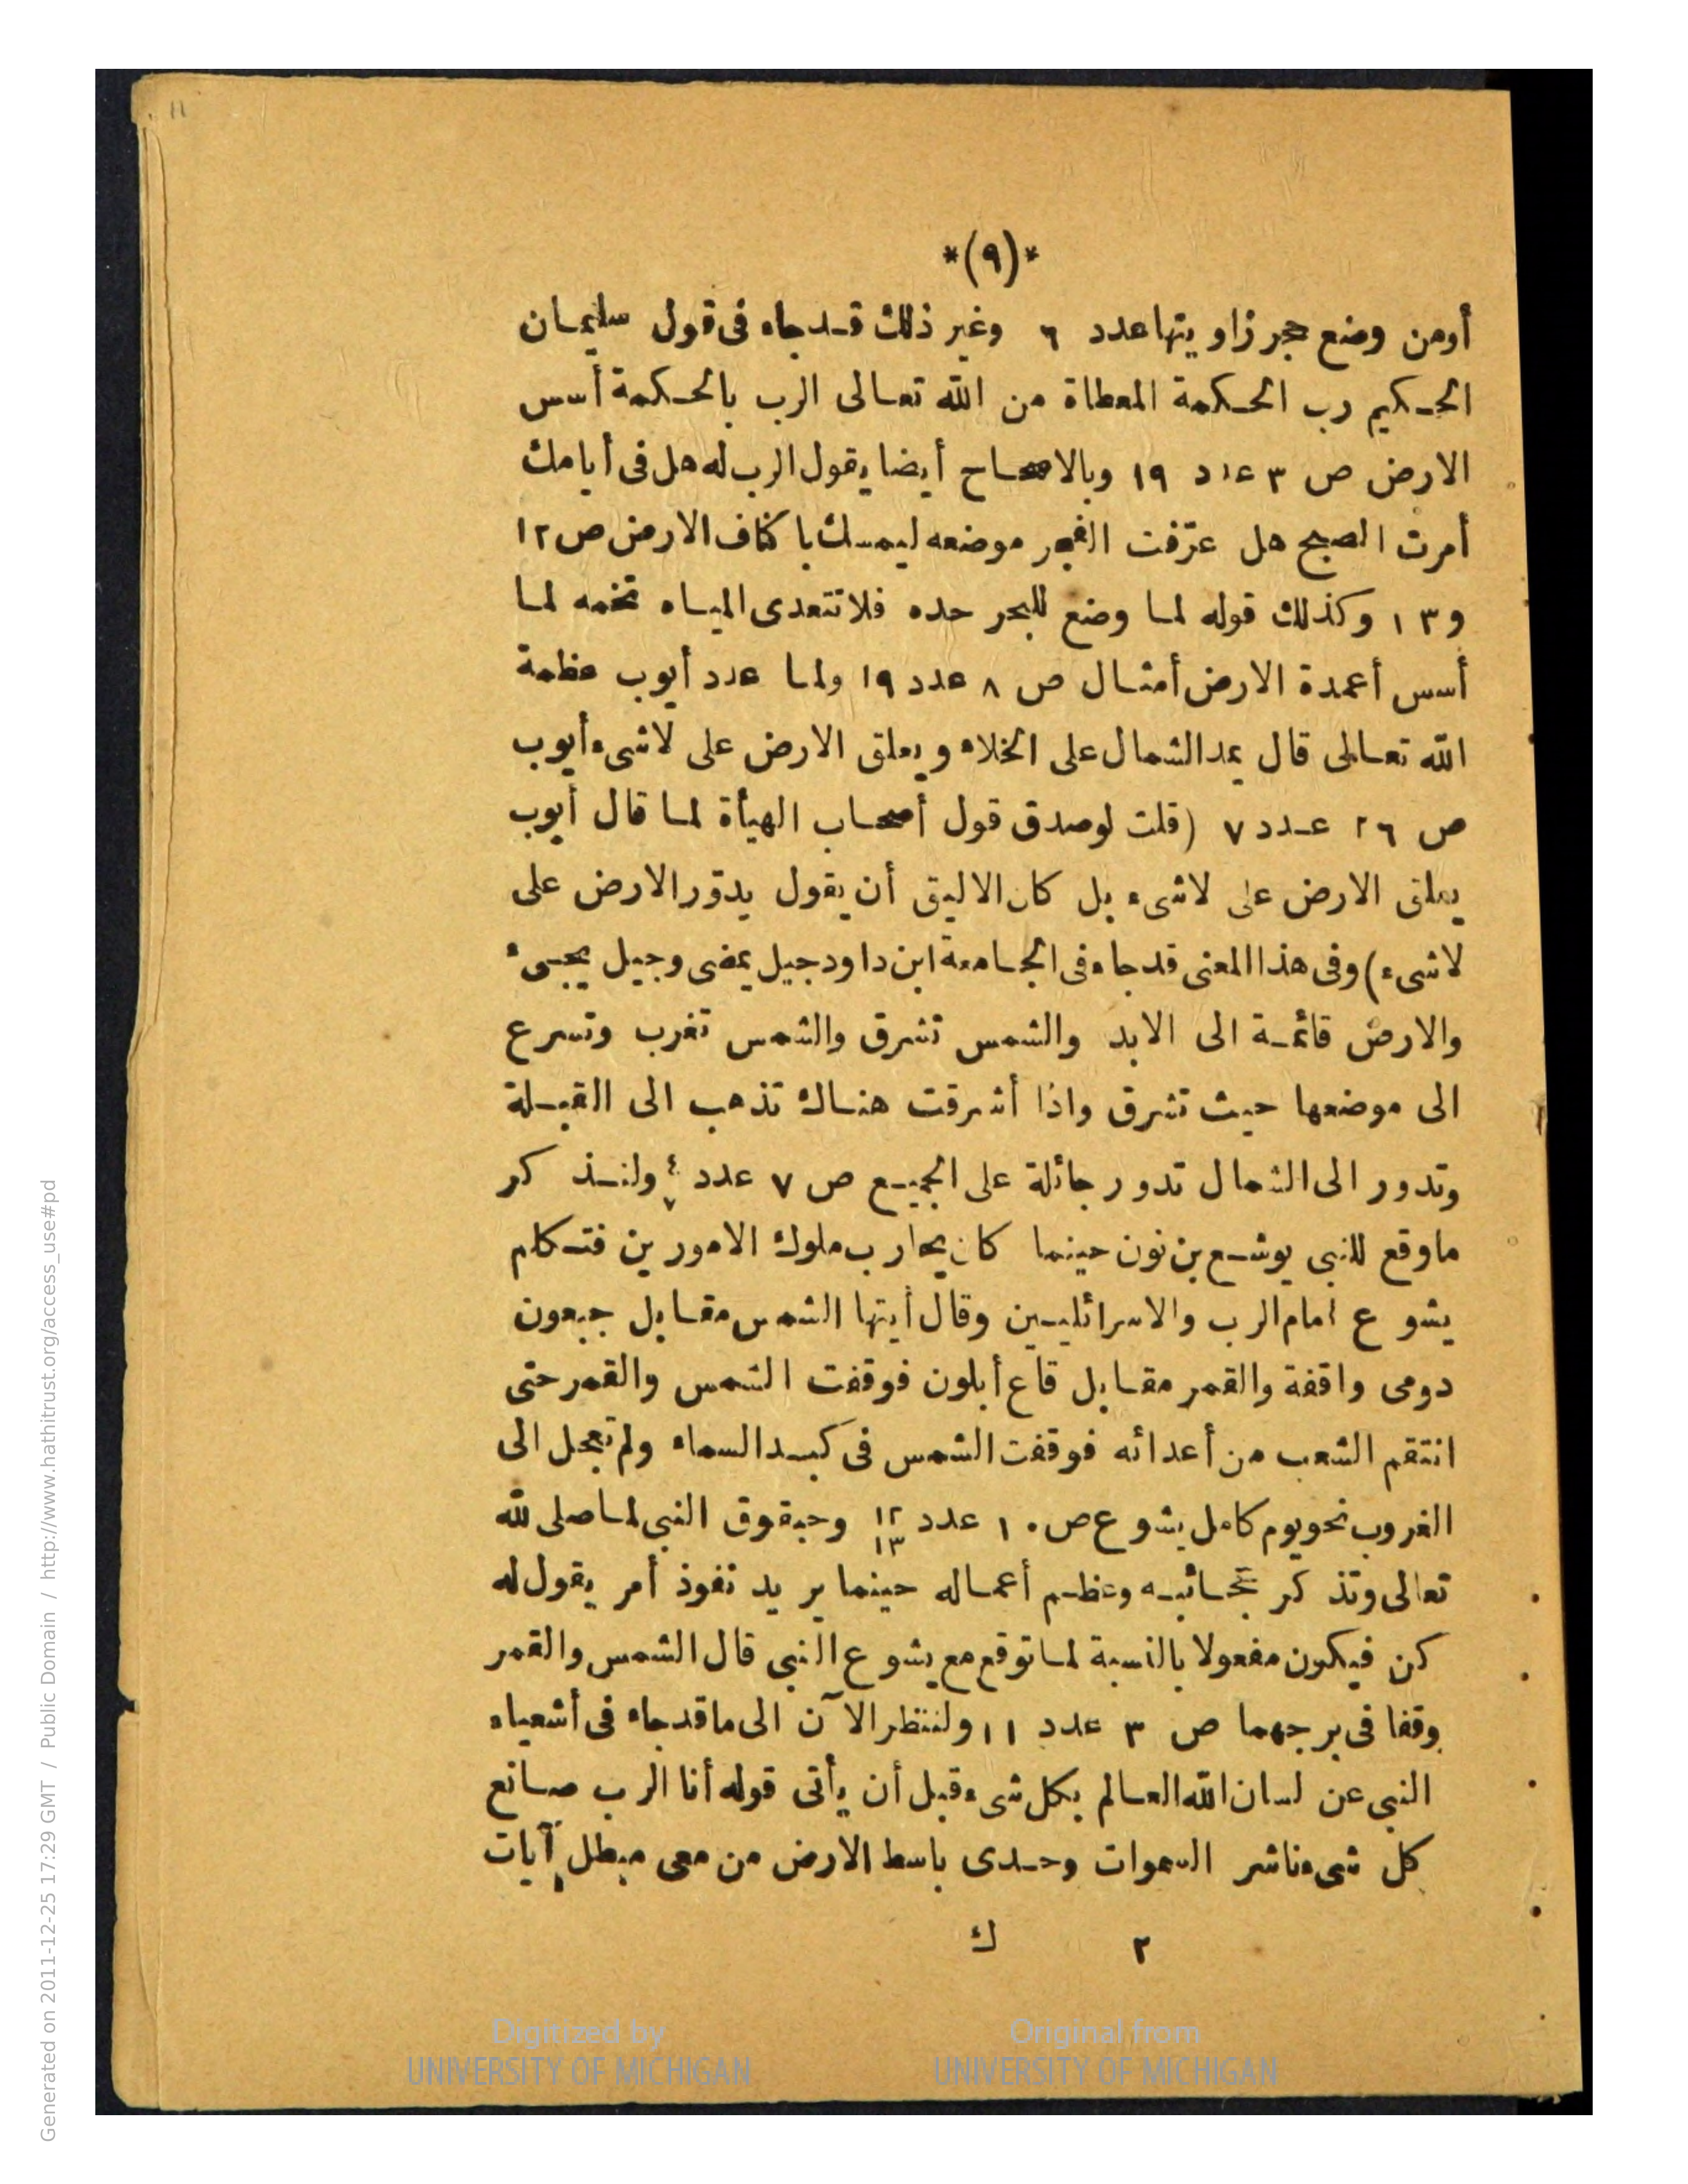 ١١
*(٩)*
أومن وضع حجر زاويتها عدد ٦ وغير ذلك قد جاء فى قول سليمان
الحكيم رب الحكمة المعطاة من الله تعالى الرب بالحكمة أسس
الارض ص ٣ عدد ١٩ وبالاصحاح أيضا يقول الرب له هل فى أيامك
أمرت الصبح هل عرّفت الفجر موضعه ليمسك باكناف الارض ص ١٢
و١٣ وكذلك قوله لما وضع للبحر حده فلا تتعدى المياه تخمه لما
أسس أعمدة الارض أمثال ص ٨ عدد ١٩ ولما عدد أيوب عظمة
الله تعالى قال يمد الشمال على الخلاء ويعلق الارض على لاشىء أيوب
ص ٢٦ عدد ٧ (قلت لو صدق قول أصحاب الهيأة لما قال أيوب
يعلق الارض على لاشىء بل كان الاليق أن يقول يدوّر الارض على
لاشىء) وفى هذا المعنى قد جاء فى الجامعة ابن داود جيل يمضى وجيل يجىء
والارض قائمة الى الابد والشمس تشرق والشمس تغرب وتسرع
الى موضعها حيث تشرق واذا أشرقت هناك تذهب الى القبلة
وتدور الى الشمال تدور جائلة على الجميع ص ٧ عدد ٤ ٧ ولنذكر
ماوقع للنبى يوشع بن نون حينما كان يحارب ملوك الامورين فتكلم
يشوع امام الرب والاسرائليين وقال أيتها الشمس مقابل جبعون
دومى واقفة والقمر مقابل قاع أيلون فوقفت الشمس والقمر حتى
انتقم الشعب من أعدائه فوقفت الشمس فى كبد السماء ولم تعجل الى
الغروب نحو يوم كامل يشوع ص ١٠ عدد ١٢ ١٣ وحبقوق النبى لما صلى لله
تعالى وتذكر عجائبه وعظم أعماله حينما يريد نفوذ أمر يقول له
كن فيكون مفعولا بالنسبة لما توقع مع يشوع النبى قال الشمس والقمر
وقفا فى برجهما ص ٣ عدد ١١ ولننتظر الآن الى ما قد جاء فى أشعياء
النبى عن لسان الله العالم بكل شىء قبل أن يأتى قوله أنا الرب صانع
كل شىء ناشر السموات وحدى باسط الارض من معى مبطل آيات
٢ ك
Digitized by
UNIVERSITY OF MICHIGAN
Original from
UNIVERSITY OF MICHIGAN
Generated on 2011-12-25 17:29 GMT / Public Domain / http://www.hathitrust.org/access_use#pd